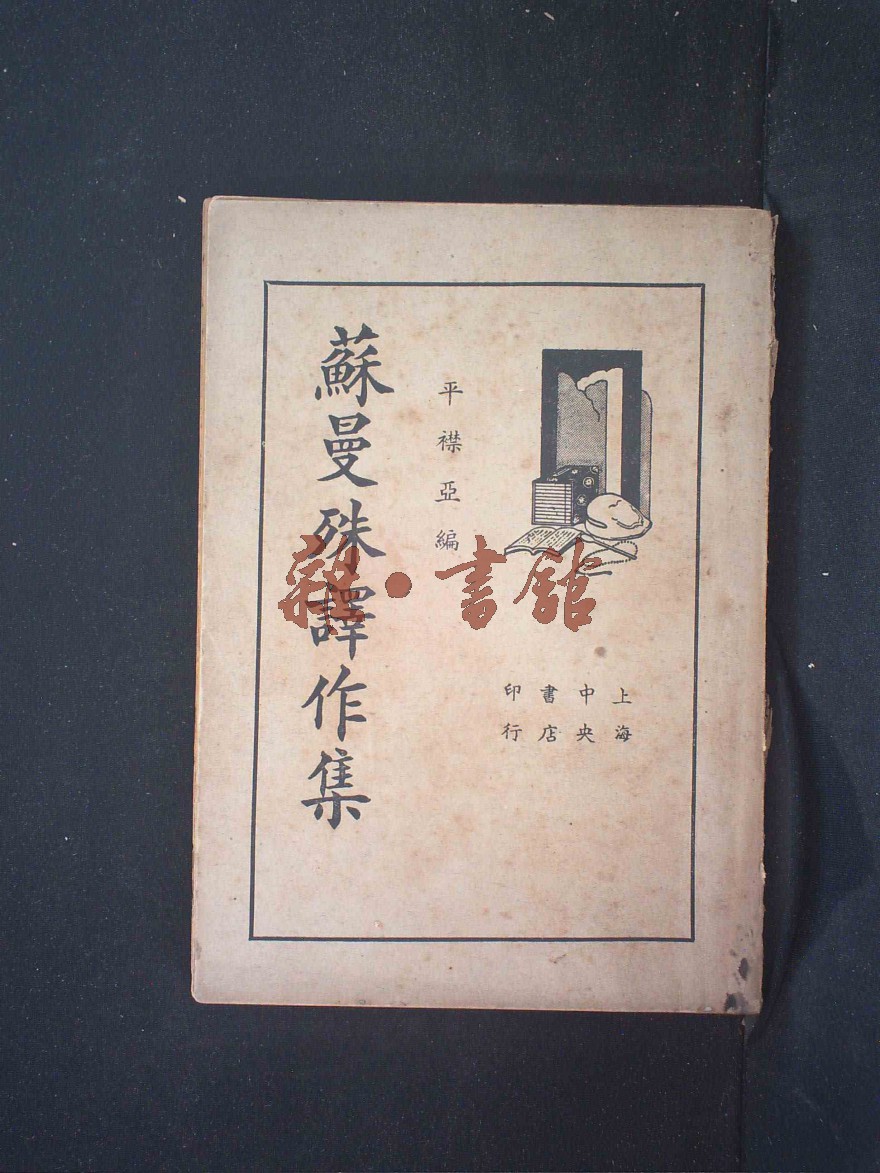 上海
中央
書店
印行
平襟亞編
蘇曼殊譯作集
雜·書館